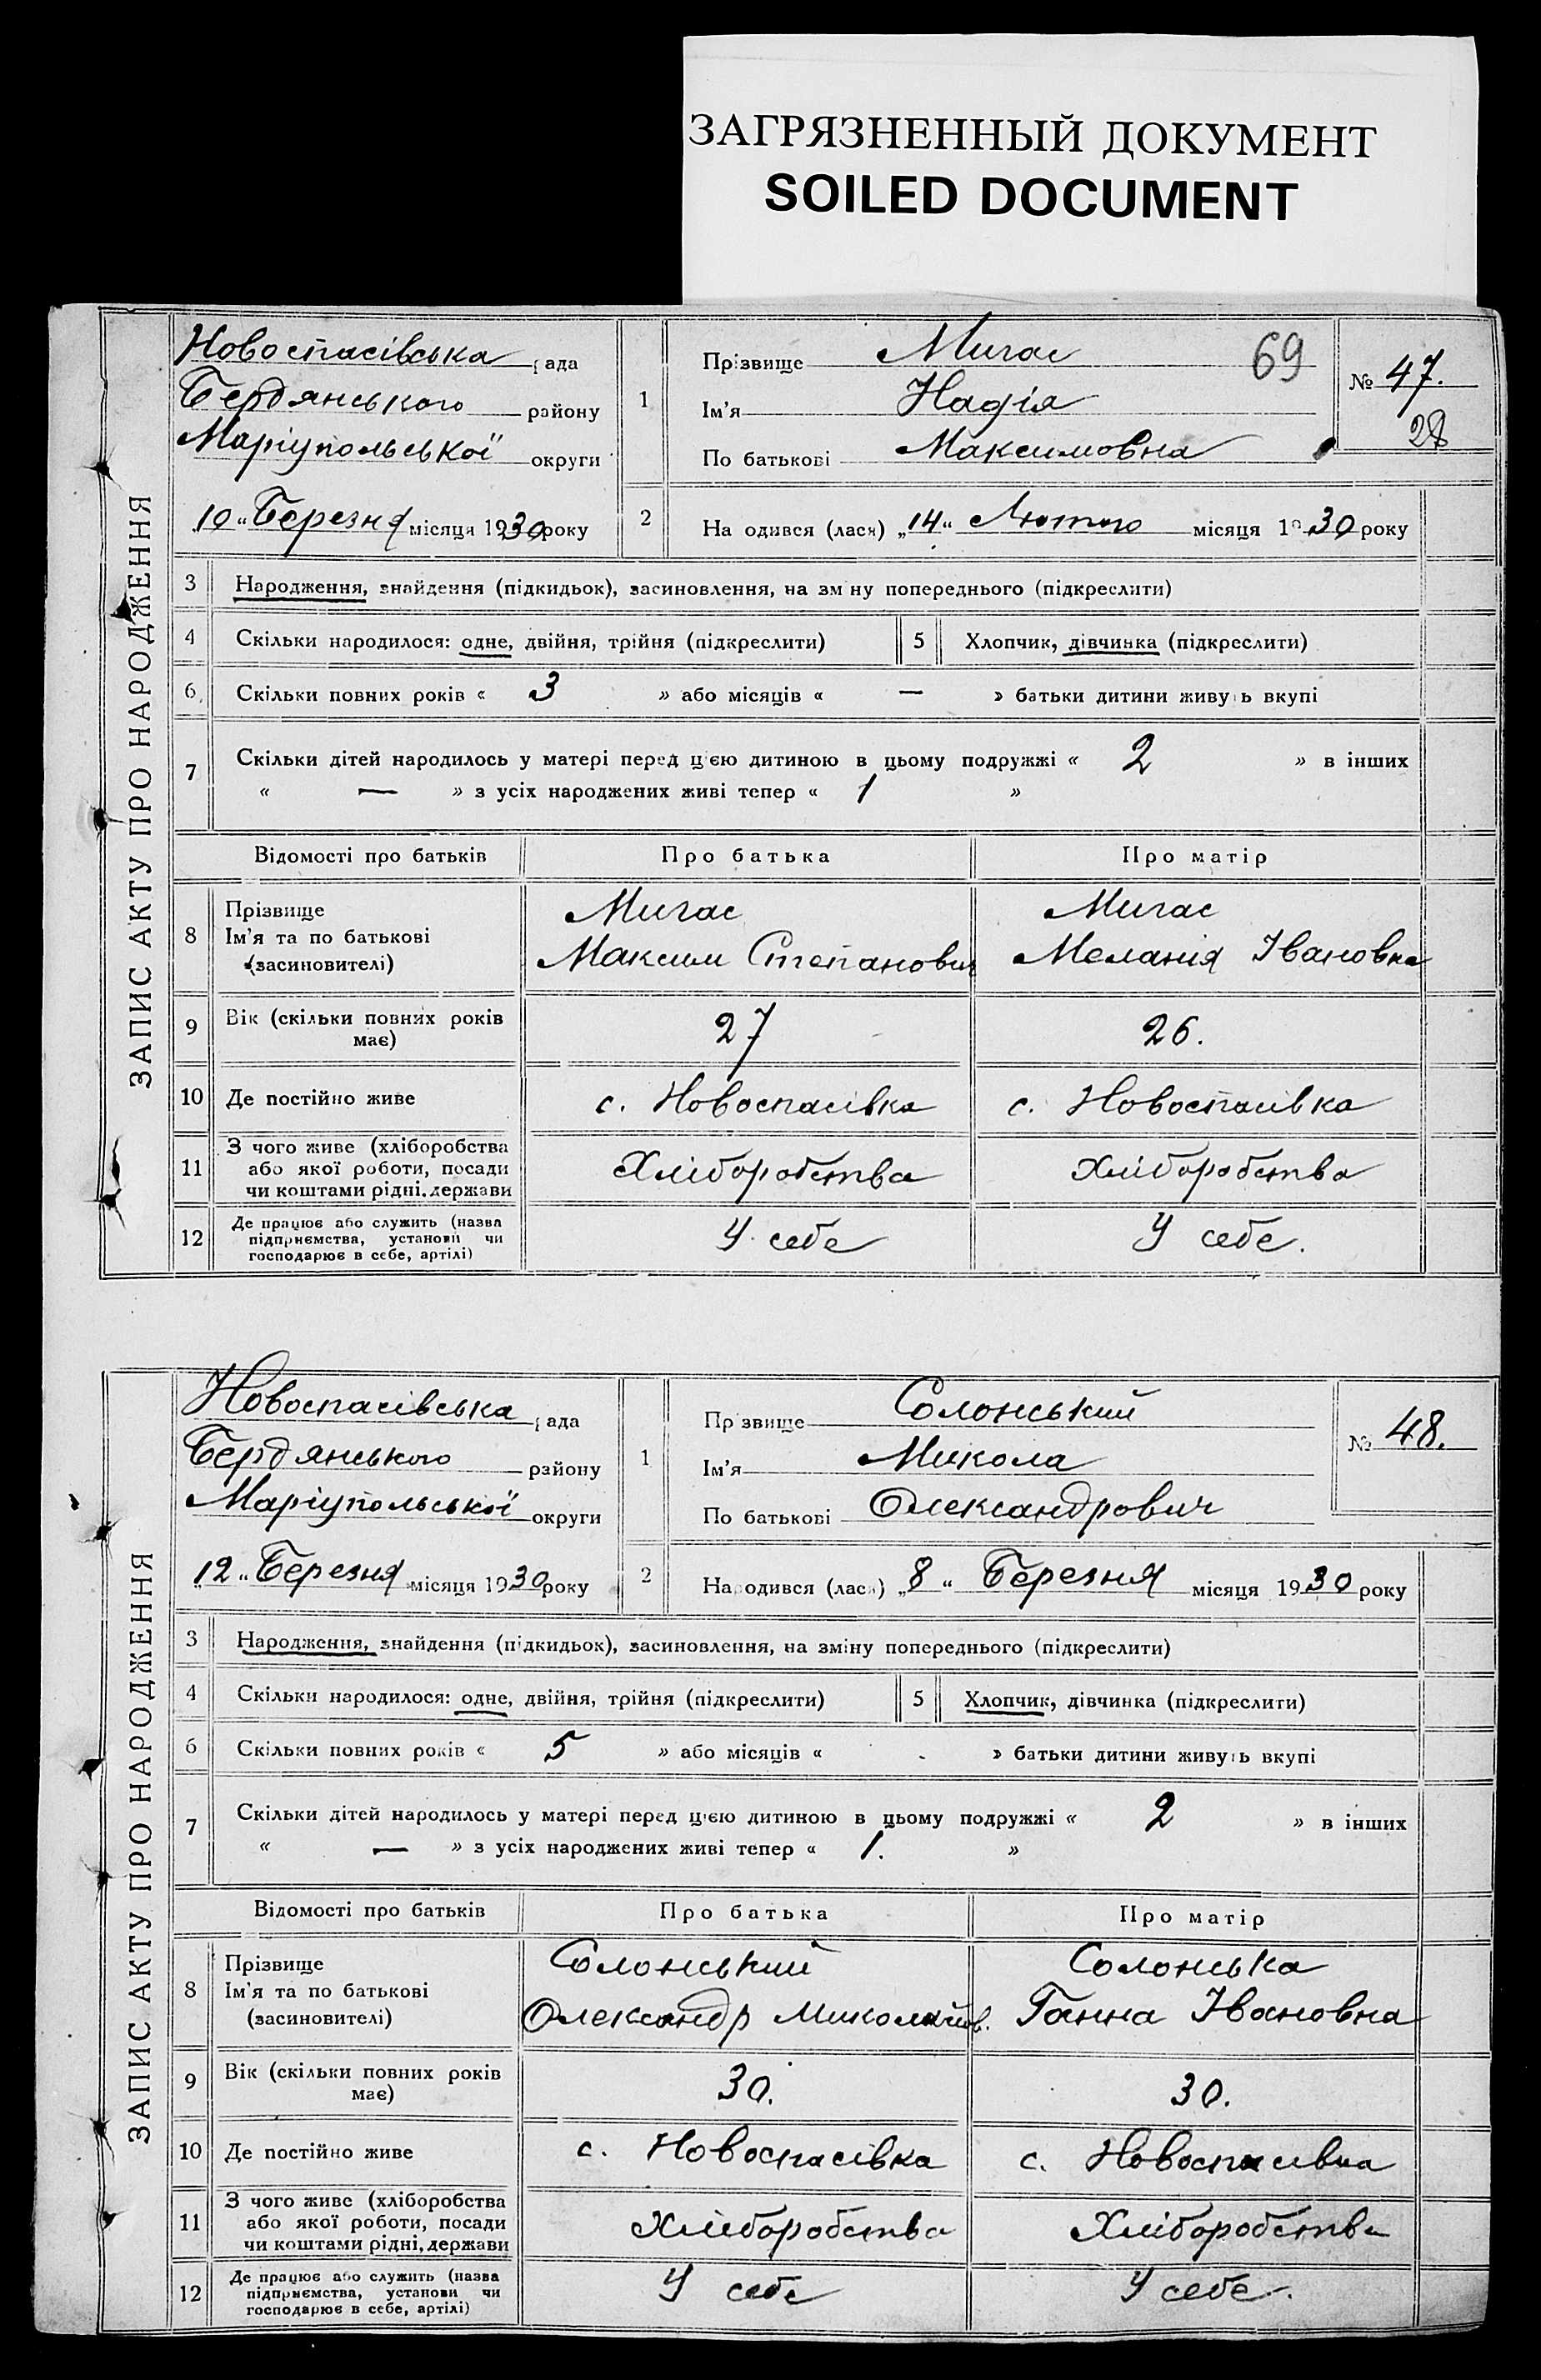 ЗАГРЯЗНЕННЫЙ ДОКУМЕНТ
SOILED DOCUMENT
ЗАПИС АКТУ ПРО НАРОДЖЕННЯ
Новоспасівська рада
Бердянського району
Маріупольської округи
„10“ Березня місяця 1930 року
1
Прізвище Мигас
69
Ім'я Надія
По батькові Максимовна
№ 47.
28
2
Народився (лася) „14“ Лютого місяця 1930 року
3 Народження, знайдення (підкидьок), засиновлення, на зміну попереднього (підкреслити)
4 Скільки народилося: одне, двійня, трійня (підкреслити) 5 Хлопчик, дівчинка (підкреслити)
6 Скільки повних років « 3 » або місяців « — » батьки дитини живуть вкупі
7 Скільки дітей народилось у матері перед цією дитиною в цьому подружжі « 2 » в інших
« — » з усіх народжених живі тепер « 1 »
Відомості про батьків Про батька Про матір
8 Прізвище Мигас Мигас
Ім'я та по батькові Максим Степанович Меланія Івановна
(засиновителі)
9 Вік (скільки повних років має) 27 26.
10 Де постійно живе с. Новоспасівка с. Новоспасівка
11 З чого живе (хліборобства
або якої роботи, посади Хліборобства Хліборобства
чи коштами рідні, держави
12 Де працює або служить (назва
підприємства, установи чи У себе У себе.
господарює в себе, артілі)
ЗАПИС АКТУ ПРО НАРОДЖЕННЯ
Новоспасівська рада
Бердянського району
Маріупольської округи
„12“ Березня місяця 1930 року
1
Прізвище Солонський
Ім'я Микола
По батькові Олександрович
№ 48.
2
Народився (лася) „8“ Березня місяця 1930 року
3 Народження, знайдення (підкидьок), засиновлення, на зміну попереднього (підкреслити)
4 Скільки народилося: одне, двійня, трійня (підкреслити) 5 Хлопчик, дівчинка (підкреслити)
6 Скільки повних років « 5 » або місяців « - » батьки дитини живуть вкупі
7 Скільки дітей народилось у матері перед цією дитиною в цьому подружжі « 2 » в інших
« — » з усіх народжених живі тепер « 1. »
Відомості про батьків Про батька Про матір
8 Прізвище Солонський Солонська
Ім'я та по батькові Олександр Миколайов. Ганна Івановна
(засиновителі)
9 Вік (скільки повних років має) 30. 30.
10 Де постійно живе с. Новоспасівка с. Новоспасівка
11 З чого живе (хліборобства
або якої роботи, посади Хліборобства Хліборобства
чи коштами рідні, держави
12 Де працює або служить (назва
підприємства, установи чи У себе У себе.
господарює в себе, артілі)